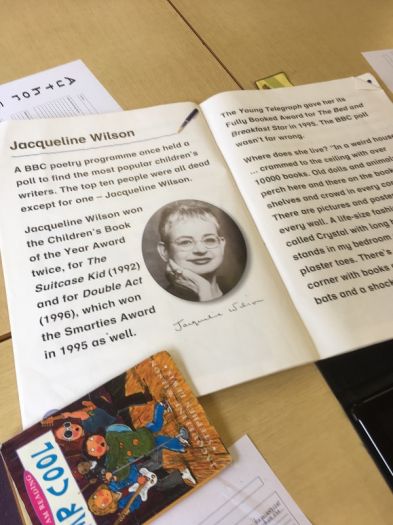 Author
Jacqueline Wilson
A BBC poetry programme once held a
poll to find the most popular children's
writers. The top ten people were all dead
except for one – Jacqueline Wilson.
Jacqueline Wilson won
the Children's Book
of the Year Award
twice, for The
Suitcase Kid (1992)
and for Double Act
(1996), which won
the Smarties Award
in 1995 as well.
Jacqueline Wilson
The Young Telegraph gave her its
Fully Booked Award for The Bed and
Breakfast Star in 1995. The BBC poll
wasn't far wrong.
Where does she live? "In a weird house
... crammed to the ceiling with over
10000 books. Old dolls and animal
perch here and there on the book
shelves and crowd in every cor
There are pictures and poster
every wall. A life-size fashi
called Crystal with long
stands in my bedroom
plaster toes. There's
corner with books
bats and a shock
I AM READING
MR COOL